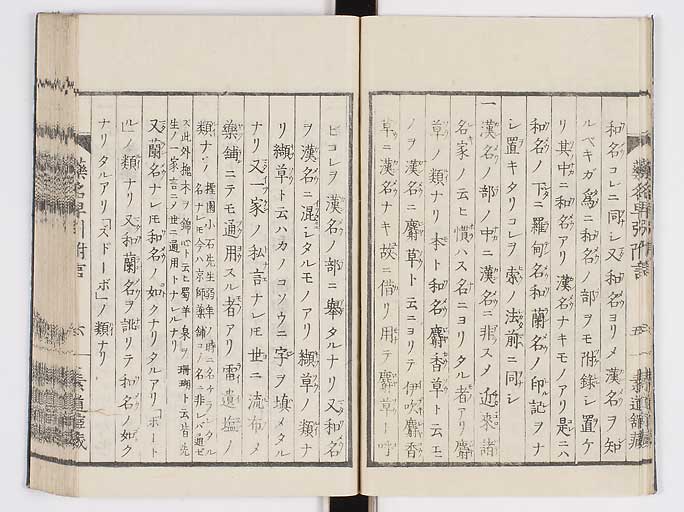 和名コレニ同シ又和名ヨリメ漢名ヲ知
ルベキガ為ニ和名ノ部ヲモ附録シ置ケ
リ其中ニ和名アリ漢名ナキモノアリ是ニハ
和名ノ下ニ羅甸名和蘭名ノ印記ヲナ
シ置キタリコレヲ索ノ法前ニ同シ
一漢名ノ部ノ中ニ漢名ニ非スメ近来諸
名家ノ云ヒ慣ハス名ニヨリタル者アリ麝
草ノ類ナリ本ト和名麝香草ト云モ
ノヲ漢名ニ麝草ト云ニヨリテ伊吹麝香
草ニ漢名ナキ故ニ借リ用テ麝草ト呼
ビコレヲ漢名ノ部ニ擧タルナリ又和名
ヲ漢名ニ混シタルモノアリ纈草ノ類ナ
リ纈草ト云ハカノコソウニ字ヲ填メタル
ナリ又一家ノ私言ナレ圧世ニ流布メ
藥舗ニテモ通用スル者アリ甭遺塩ノ
類ナリ
名ナレモ今ハ京師藥舗コノ名ニ非レバ通ゼ
生ノ一家言ニノ世ニ通用トナレルナリ
又蘭名ナレ圧和名ノ如クナリタルアリ「ポート
ル」ノ類ナリ又和蘭名ヲ訛リテ和名ノ如ク
ナリタルアリ「ズドーボ」ノ類ナリ